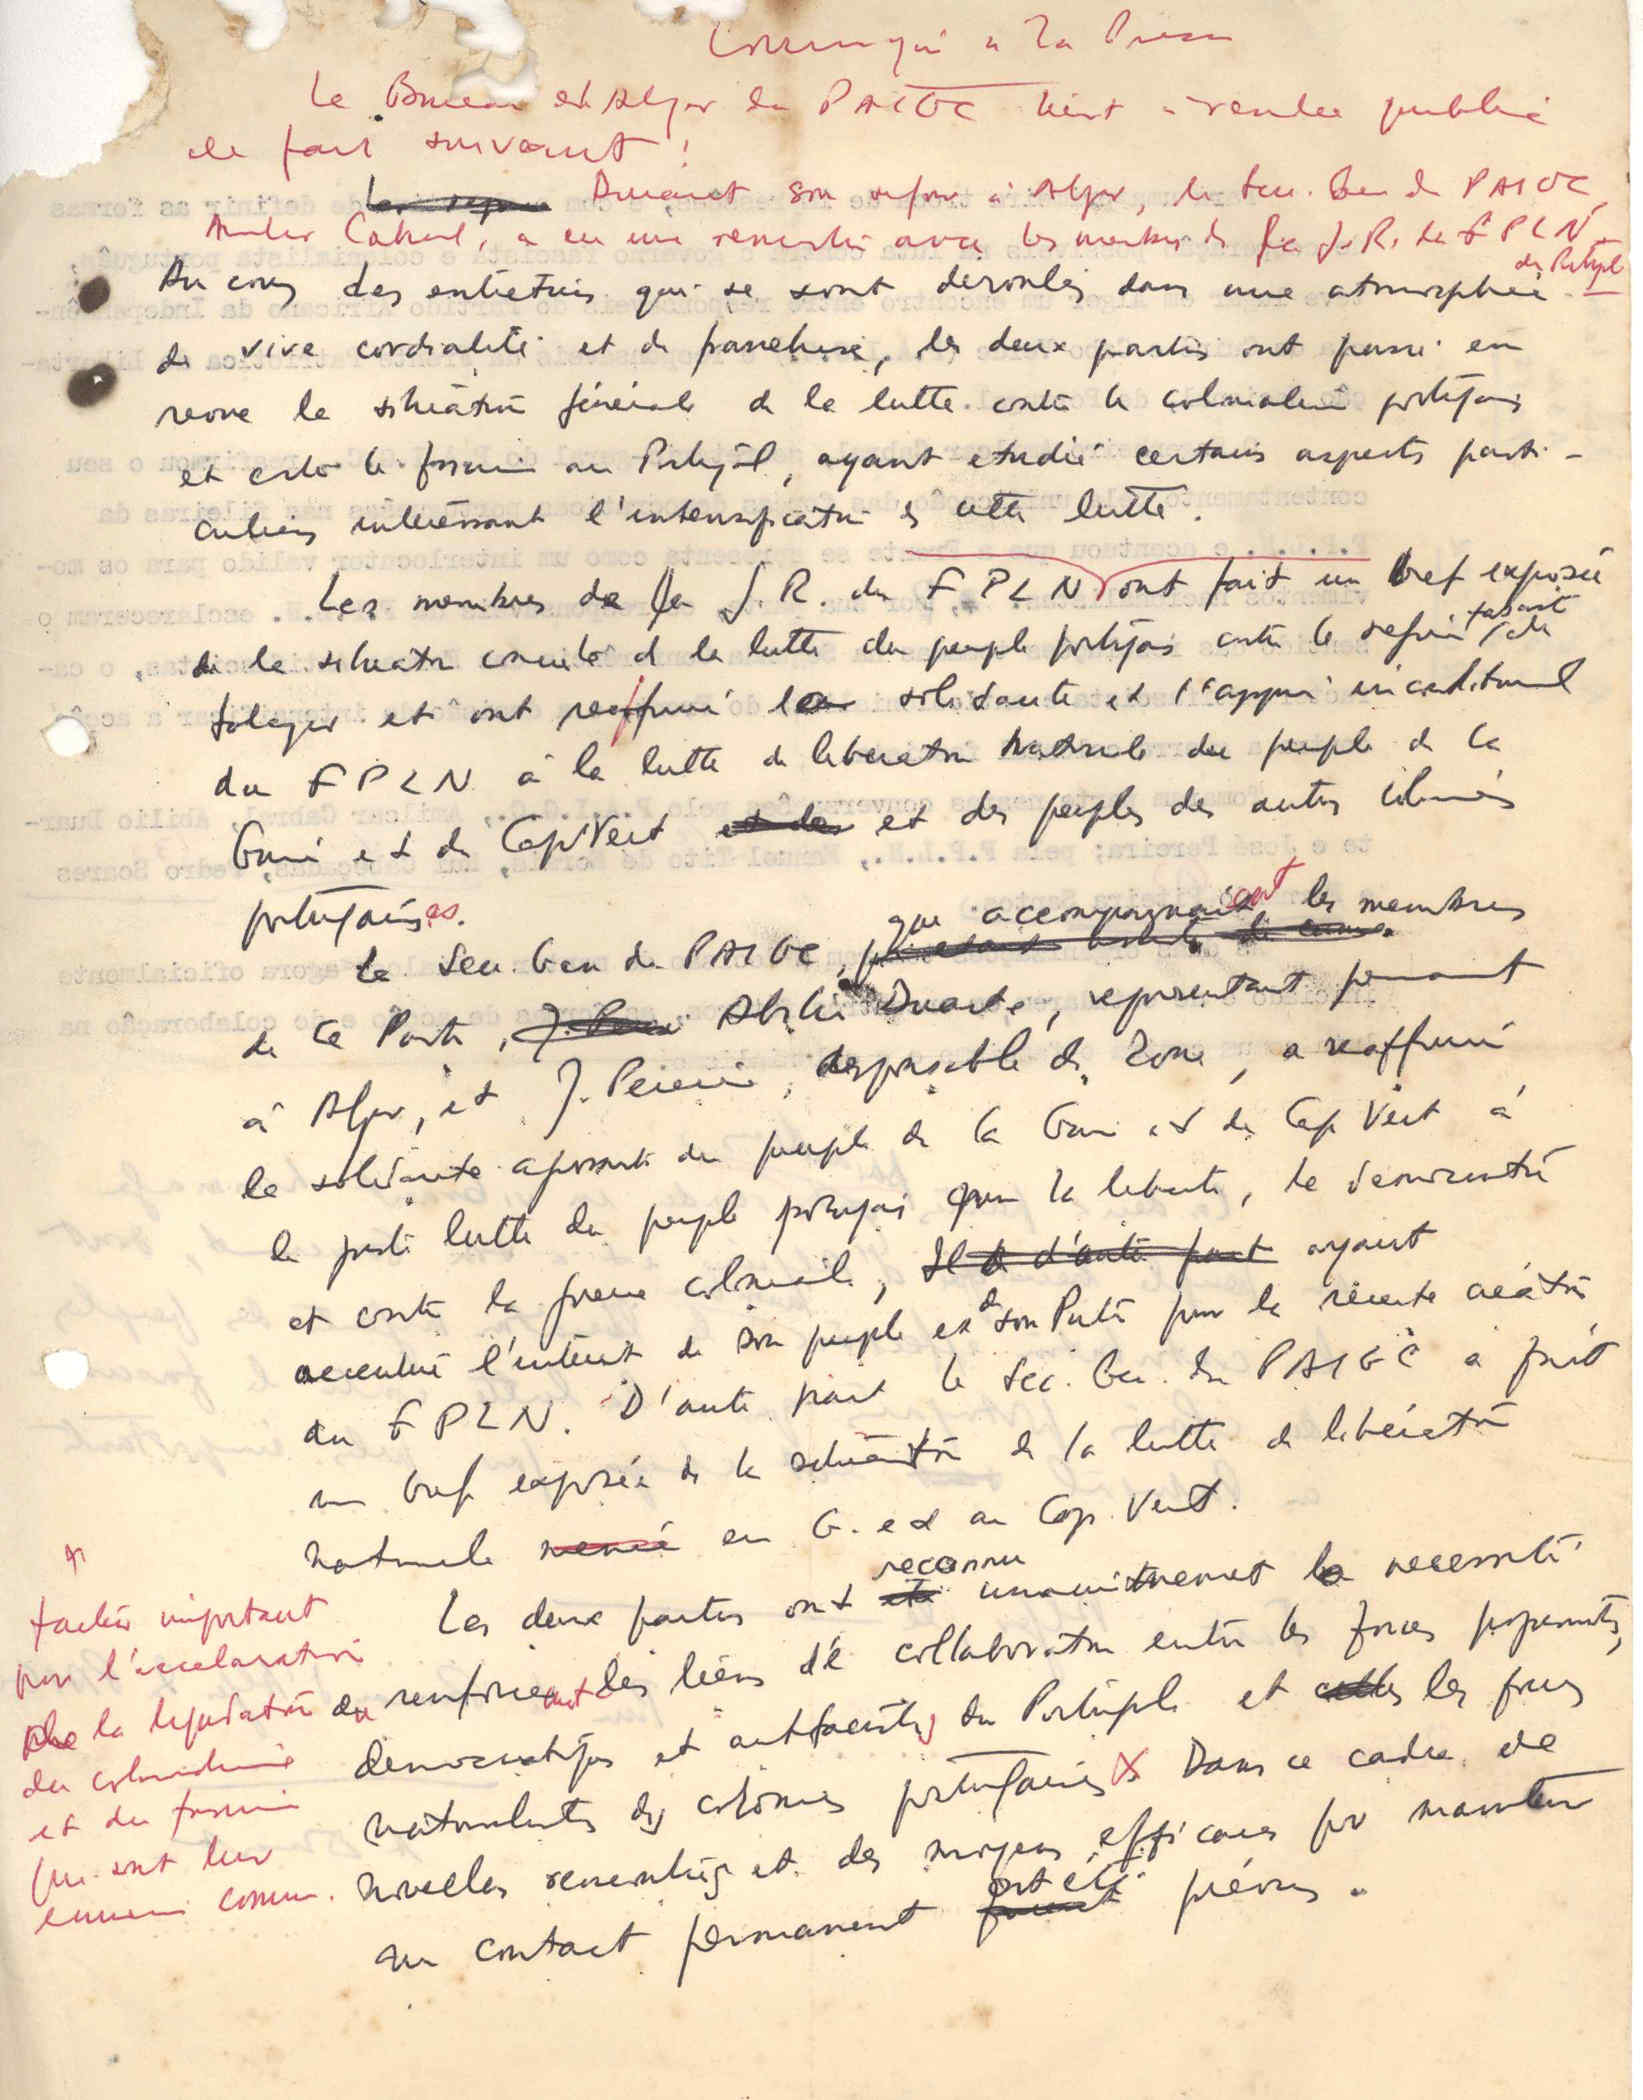 Communiqué à la Presse
Le Bureau d'Alger du PAIGC tient à rendre public
le fait suivant :
Durant son séjour à Alger, le Secr. Gen. du PAIGC,
Amilcar Cabral, a eu une rencontre avec les membres de la J.R. du FPLN
du Portugal
Au cours des entretiens qui se sont déroulés dans une atmosphère
de vive cordialité et de franchise, les deux parties ont passé en
revue la situation générale de la lutte contre le colonialisme portugais
et contre le fascisme au Portugal, ayant étudié certains aspects parti-
culiers intéressant l'intensification de cette lutte.
Les membres de la J.R. du FPLN ont fait un bref exposé
de la situation concrète de la lutte du peuple portugais contre le régime fasciste de
Salazar et ont réaffirmé leur solidarité et l'appui inconditionnel
du FPLN à la lutte de libération nationale du peuple de la
Guinée et du Cap Vert et des peuples des autres colonies
portugaises.
Le Secr. Gen du PAIGC, que accompagnaient les membres
de ce Parti, Abilio Duarte, représentant permanent
à Alger, et J. Pereira, responsable de Zone, a réaffirmé
la solidarité agissante du peuple de la Guinée et du Cap Vert à
la juste lutte du peuple portugais pour la liberté, la démocratie
et contre la guerre coloniale, ayant
accentué l'intérêt de son peuple et de son Parti pour la récente création
du FPLN. D'autre part le Sec. Gen. du PAIGC a fait
un bref exposé de la situation de la lutte de libération
nationale en G. et au Cap. Vert.
Les deux parties ont reconnu unanimement la nécessité
du renforcement des liens de collaboration entre les forces progressistes,
démocratiques et antifascistes du Portugal et les forces
nationalistes des colonies portugaises X Dans ce cadre de
nouvelles rencontres et des moyens efficaces pour maintenir
un contact permanent ont été prévus.
facteur important
pour l'accélération
de la liquidation
du colonialisme
et du fascisme
qui sont leur
ennemi commun.